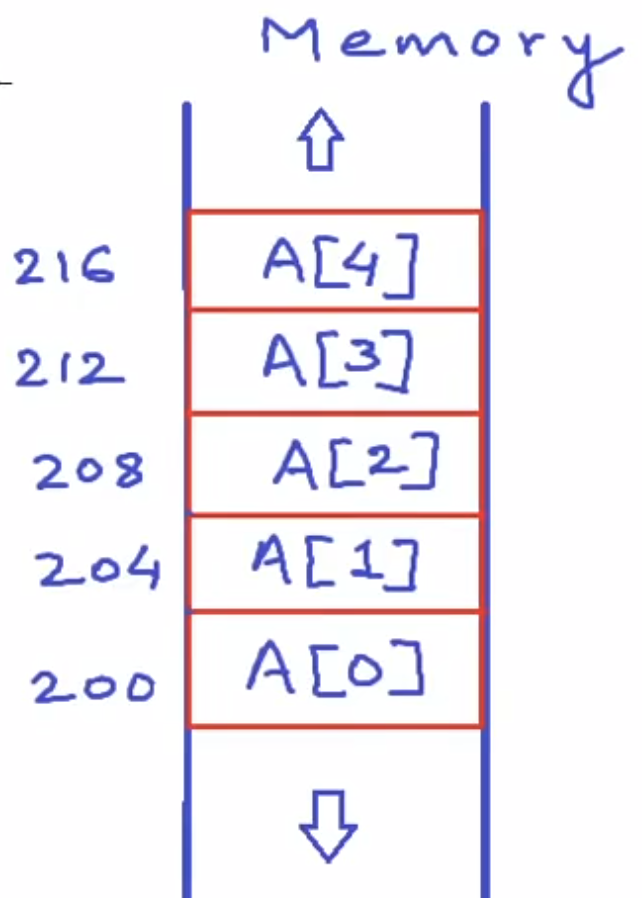 Memory
216 A[4]
212 A[3]
208 A[2]
204 A[1]
200 A[0]